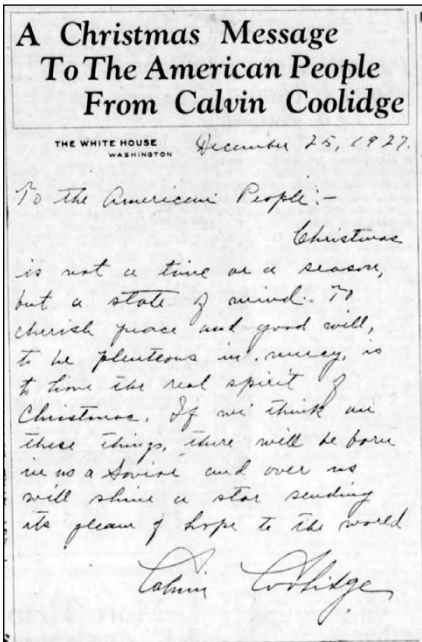 A Christmas Message
To The American People
From Calvin Coolidge
THE WHITE HOUSE
WASHINGTON
December 25, 1927.
To the American People:-
Christmas
is not a time or a season,
but a state of mind. To
cherish peace and good will,
to be plenteous in mercy, is
to have the real spirit of
Christmas. If we think on
these things, there will be born
in us a Savior and over us
will shine a star sending
its gleam of hope to the world
Calvin Coolidge